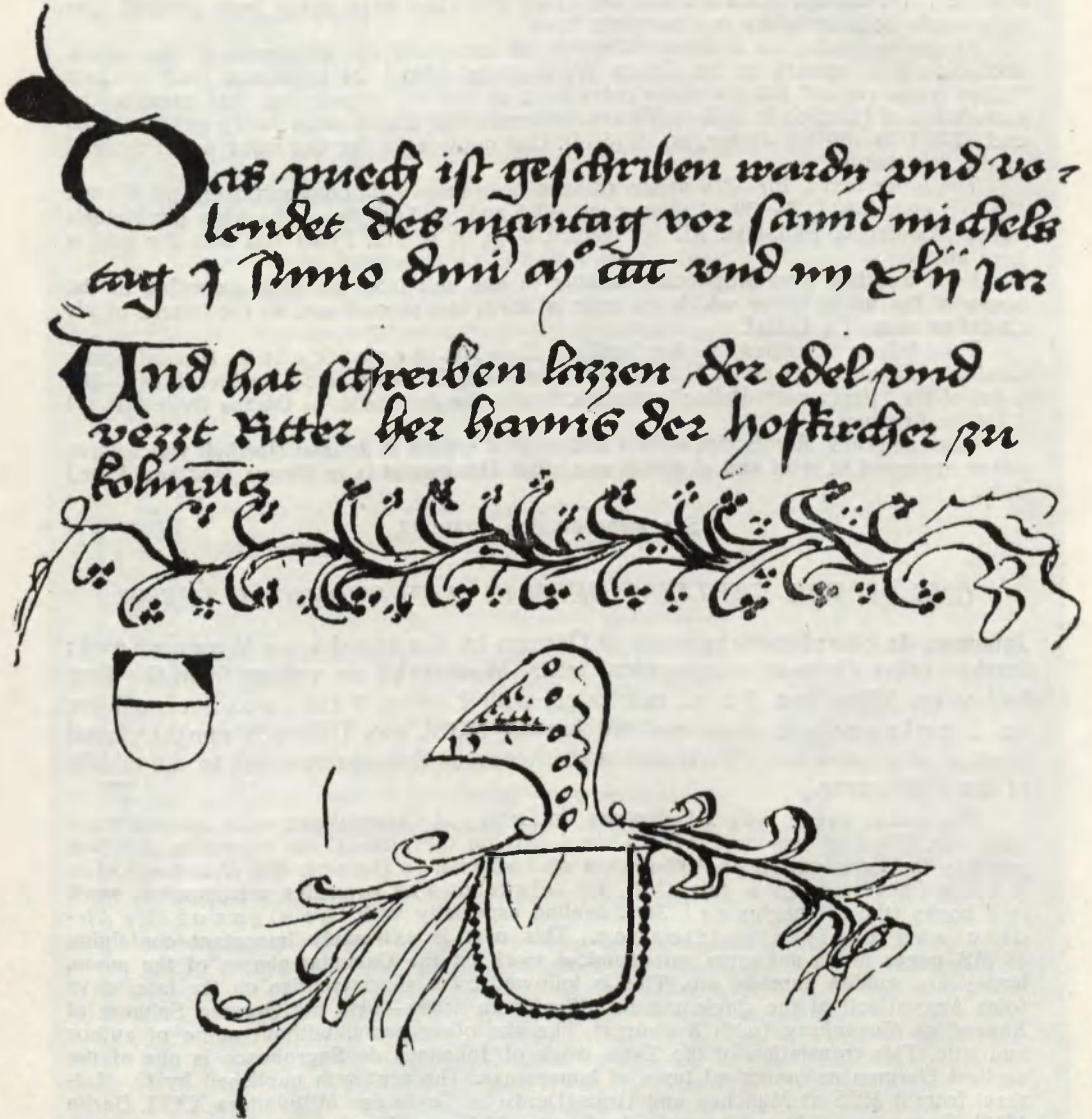 Das puech ist geschriben wardn vnd vo-
lendet des mantag vor sannd michels
tag J Anno dmi mº cccc vnd im xlii Jar
Und hat schreiben lazzen der edel vnd
vezzt Ritter her hanns der hofkircher zu
kolmūcz